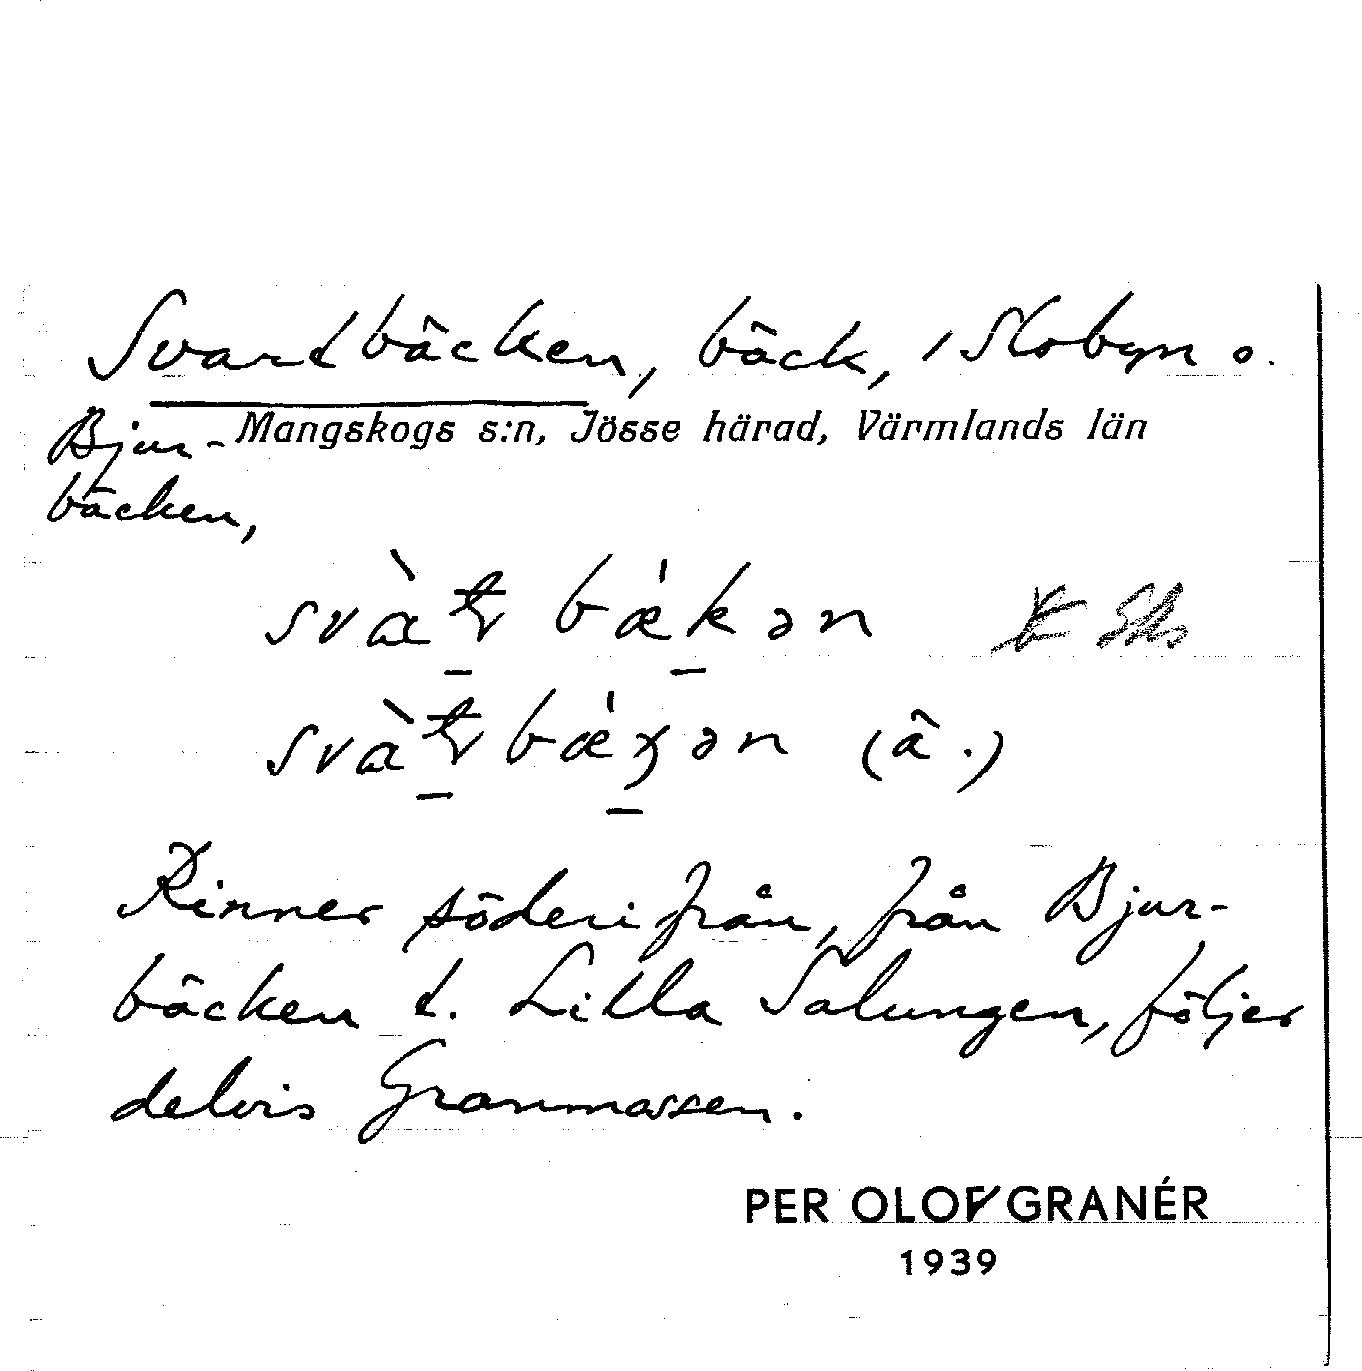 Svartbäcken, bäck, i Slobyn o.
Bjur- Mangskogs s:n, Jösse härad, Värmlands län
bäcken,
svàt bǽkən
svàt bǽχən (ä.)
Rinner söderifrån, från Bjur-
bäcken t. Lilla Salungen, följer
delvis Granmossen.
PER OLOF GRANÉR
1939